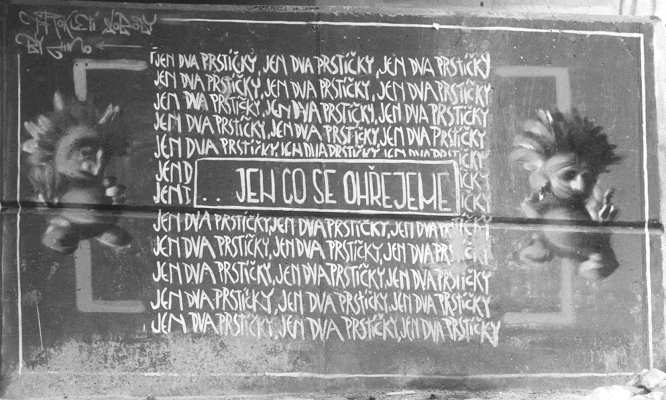 JEN DVA PRSTÍČKY, JEN DVA PRSTÍČKY, JEN DVA PRSTÍČKY
JEN DVA PRSTÍČKY, JEN DVA PRSTÍČKY, JEN DVA PRSTÍČKY
JEN DVA PRSTÍČKY, JEN DVA PRSTÍČKY, JEN DVA PRSTÍČKY
JEN DVA PRSTÍČKY, JEN DVA PRSTÍČKY, JEN DVA PRSTÍČKY
JEN DVA PRSTÍČKY, JEN DVA PRSTÍČKY, JEN DVA PRSTÍČKY
JEN D
.. JEN CO SE OHŘEJEME
JEN DVA PRSTÍČKY, JEN DVA PRSTÍČKY, JEN DVA PRSTÍČKY
JEN DVA PRSTÍČKY, JEN DVA PRSTÍČKY, JEN DVA PRSTÍČKY
JEN DVA PRSTÍČKY, JEN DVA PRSTÍČKY, JEN DVA PRSTÍČKY
JEN DVA PRSTÍČKY, JEN DVA PRSTÍČKY, JEN DVA PRSTÍČKY
JEN DVA PRSTÍČKY, JEN DVA PRSTÍČKY, JEN DVA PRSTÍČKY